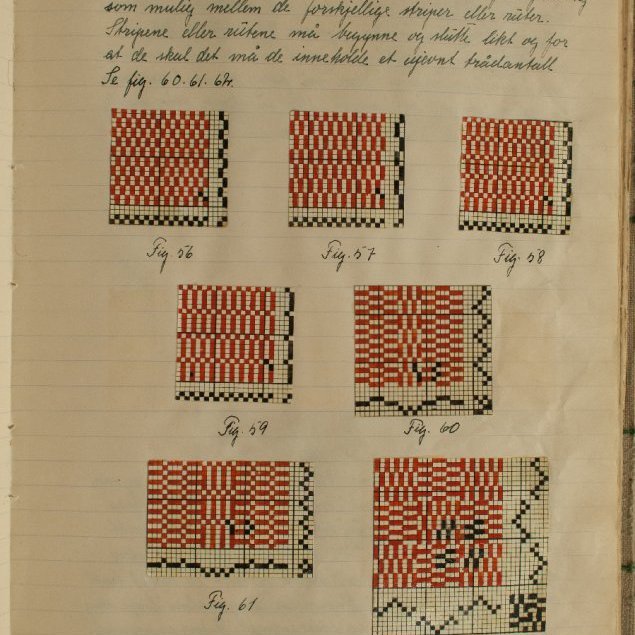 som mulig mellem de forskjellige striper eller ruter.
Stripene eller rutene må begynne og slutte likt og for
at de skal det må de inneholde et ujevnt trådantall
Se fig. 60. 61.
Fig. 56
Fig. 57
Fig. 58
Fig. 59
Fig. 60
Fig. 61